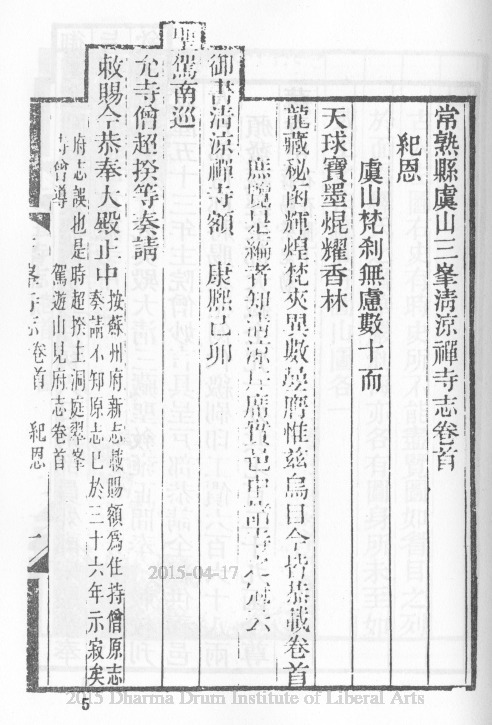 常熟縣虞山三峯清涼禪寺志卷首
紀恩
虞山梵刹無慮數十而
天球寶墨焜耀香林
龍藏秘函輝煌梵夾異數焱膺惟茲烏目今皆恭載卷首
庶覽是編者知清涼片席實邑中諸寺之冠云
御書清涼禪寺額 康熙己卯
聖駕南巡
允寺僧超揆等奏請
敕賜今恭奉大殿正中 按蘇州府新志載賜額為住持僧原志
奏請不知原志已於三十六年示寂矣
府志誤也是時超揆主洞庭翠峯
寺曾導 駕遊山見府志卷首
三峯寺志 卷首 紀恩 一
2015-04-17
2015 Dharma Drum Institute of Liberal Arts
5